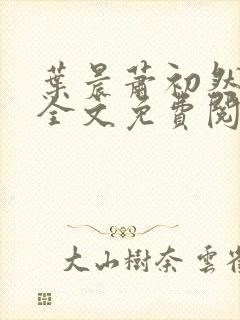 葉晨蕭初然
全文免費閱
大山樹奈 雲雀